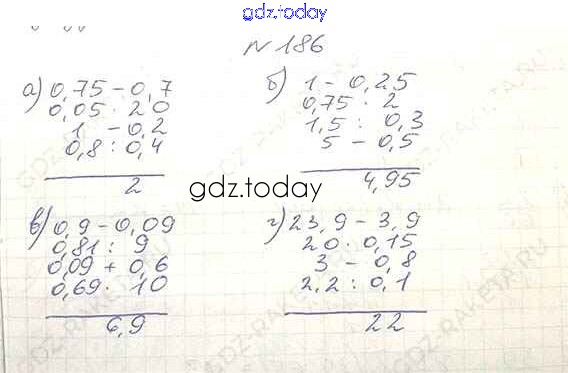 gdz.today
№ 186
а) 0,75 - 0,7
0,05 · 20
1 - 0,2
0,8 : 0,4
2
б) 1 - 0,25
0,75 · 2
1,5 : 0,3
5 - 0,5
4,95
gdz.today
в) 0,9 - 0,09
0,81 : 9
0,09 + 0,6
0,69 · 10
6,9
г) 23,9 - 3,9
20 · 0,15
3 - 0,8
2,2 : 0,1
22